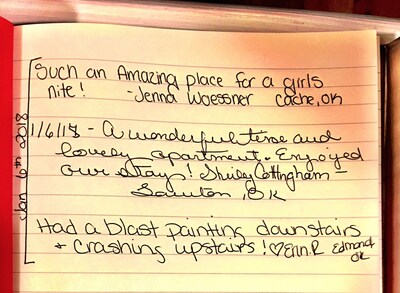 Jan 6th 2018
Such an Amazing place for a girls
nite! - Jenna Woessner Cache, OK
1/6/18 - A wonderful time and
lovely apartment. Enjoyed
our stay! Shirley Cottingham -
OK
Had a blast painting downstairs
+ Crashing upstairs! ♡ Erin.R Edmond
OK